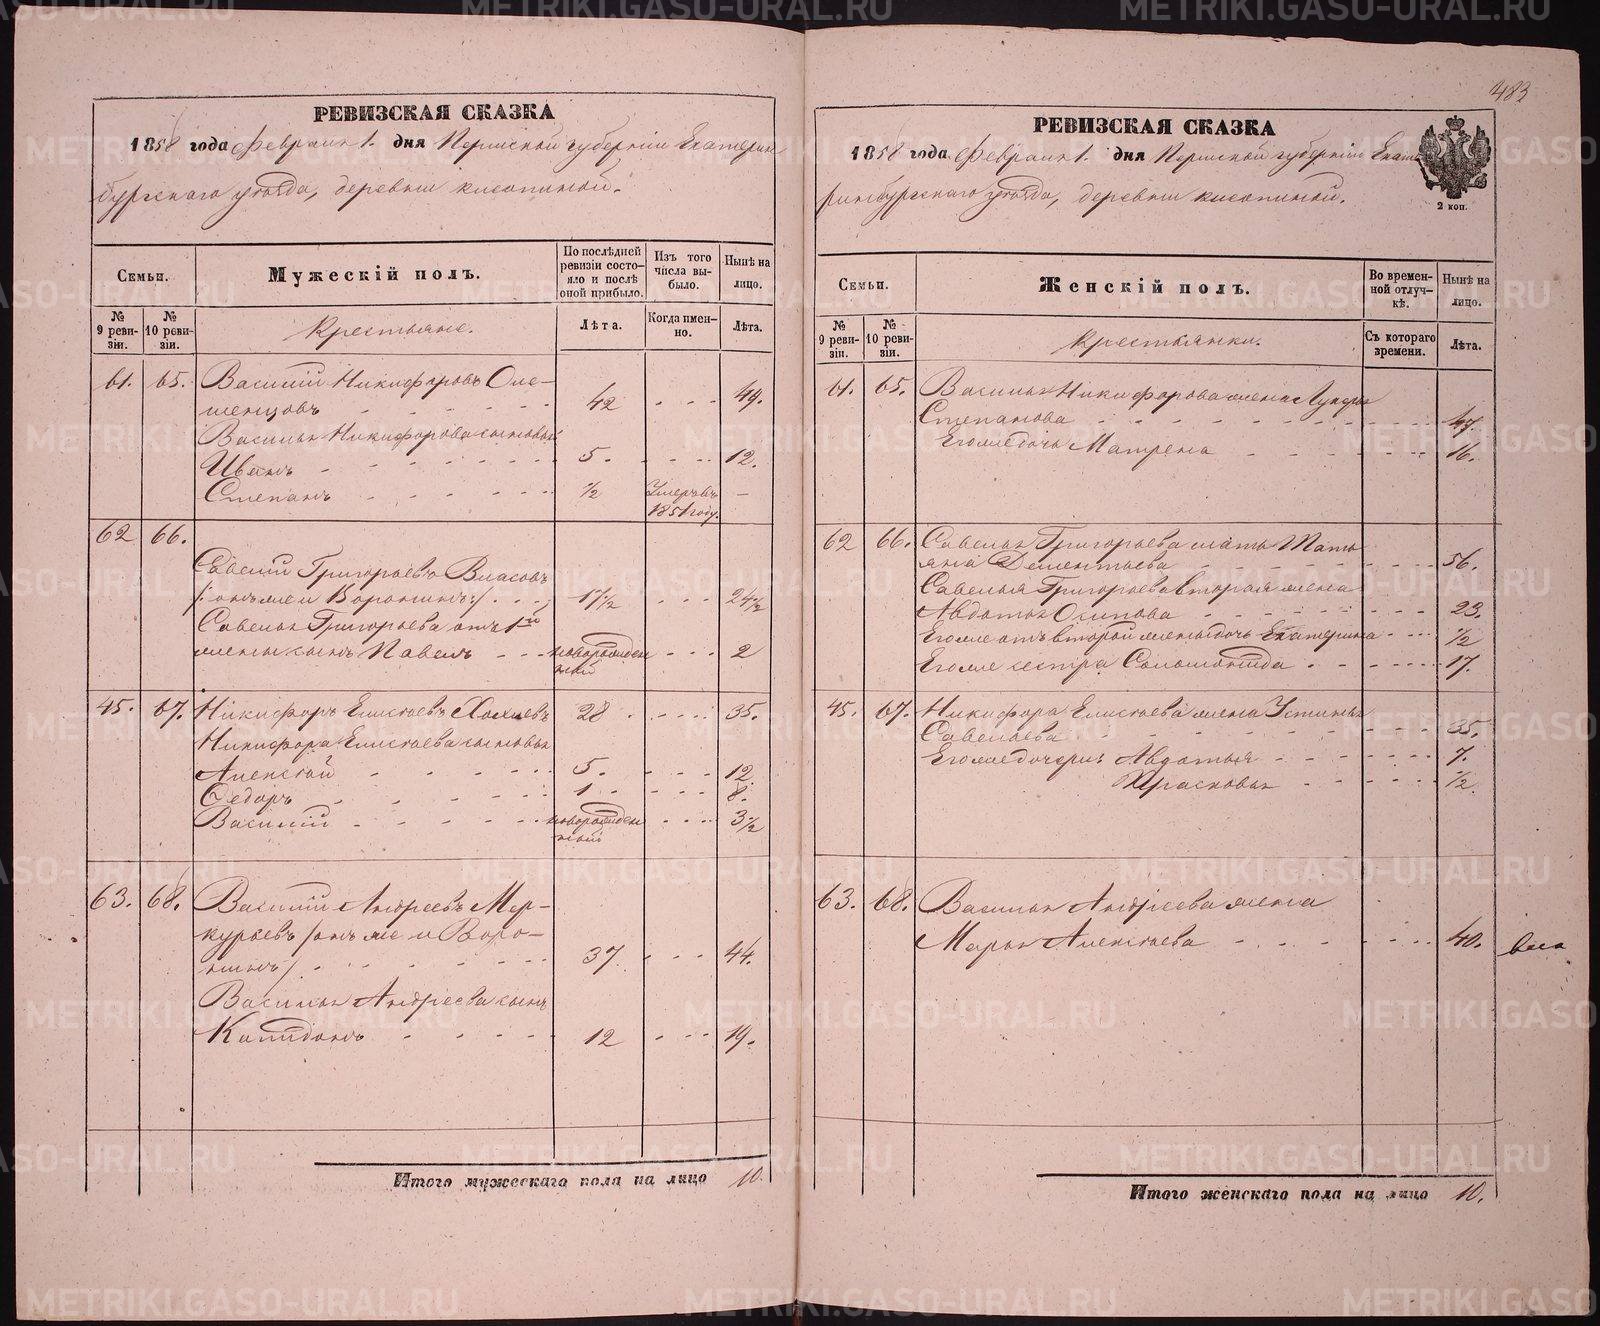 483
РЕВИЗСКАЯ СКАЗКА
1858 года февраля 1. дня Пермской губернiи Екатерин
бургскаго уѣзда, деревни
Семьи.
Мужескій полъ.
По послѣдней ревизіи состояло и послѣ оной прибыло.
Изъ того числа выбыло.
Нынѣ на лицо.
№ 9 ревизіи.
№ 10 ревизіи.
Крестьяне.
Лѣта.
Когда именно.
Лѣта.
61. 65. Василій Никифоровъ
42 49.
Василья Никифорова сыновья
Иванъ 5. 12.
Степанъ ½ Умеръ въ 1851 году. —
62 66.
Савелій Григорьевъ Власовъ
/: онъ же и Воронинъ :/ 17½ 24½
Савелья Григорьева отъ 1й
жены сынъ Павелъ новорожденный 2
45. 67. Никифоръ Елисѣевъ 28 35.
Никифора Елисѣева сыновья
Алексѣй 5. 12.
Ѳедоръ 1 8.
Василій новорожденный 3½
63. 68. Василій Андреевъ Мер-
курьевъ /онъ же и Воро-
нинъ/ 37 44.
Василья Андреева сынъ
12 19.
Итого мужескаго пола на лицо 10.
РЕВИЗСКАЯ СКАЗКА
1858 года февраля 1. дня Пермской губерніи Екате
ринбургскаго уѣзда, деревни
2 коп.
Семьи.
Женскій полъ.
Во временной отлучкѣ.
Нынѣ на лицо.
№ 9 ревизіи.
№ 10 ревизіи.
Крестьянки.
Съ котораго времени.
Лѣта.
61. 65. Василья Никифорова жена
Степанова
Его же дочь Матрена 16.
62 66. Савелья Григорьева мать Тать
яна Дементьева 56.
Савелья Григорьева вторая жена
Авдотья Осипова 23.
Его же отъ второй жены дочь Екатерина ½
Его же сестра Соломонида 17.
45. 67. Никифора Елисѣева жена Устинья
Савельева 35.
Его же дочери: Авдотья 7.
Прасковья ½
63. 68. Василья Андреева жена
Марья Алексѣева 40.
Итого женскаго пола на лицо 10.
METRIKI.GASO-URAL.RU